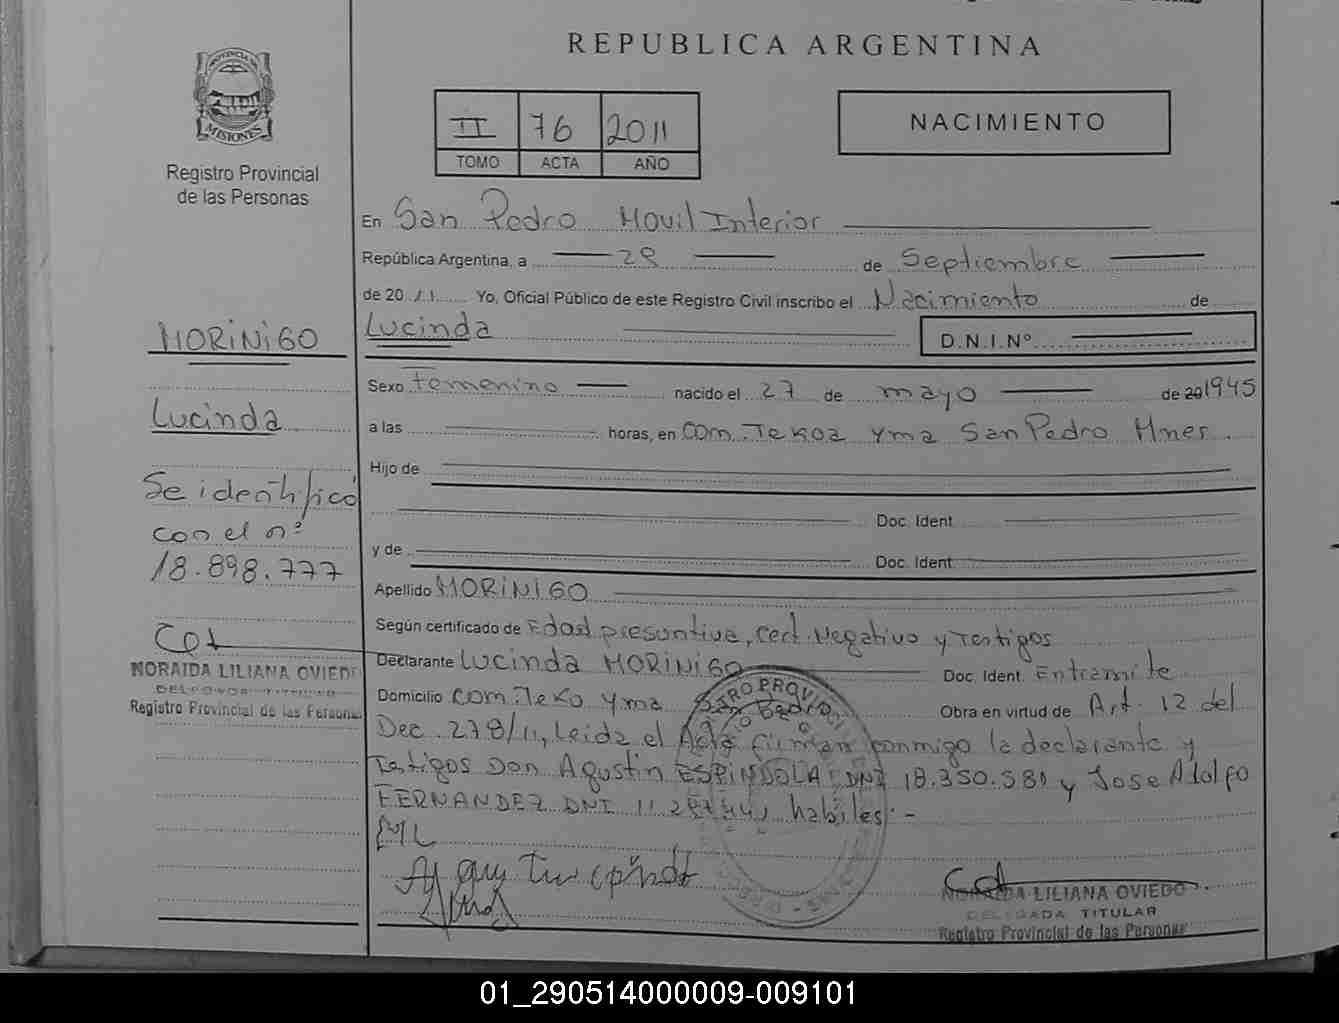 REPUBLICA ARGENTINA
PROVINCIA DE MISIONES
Registro Provincial
de las Personas
II 76 2011
TOMO ACTA AÑO
NACIMIENTO
En San Pedro Movil Interior
República Argentina, a 28 de Septiembre
de 20 11 Yo, Oficial Público de este Registro Civil inscribo el Nacimiento de
Lucinda D.N.I.Nº
Sexo Femenino nacido el 27 de mayo de 20 1945
a las horas, en Com. Tekoa Yma San Pedro Mnes.
Hijo de
Doc. Ident.
y de Doc. Ident.
Apellido MORINIGO
Según certificado de Edad presuntiva, Cert. Negativo y Testigos
Declarante Lucinda MORINIGO Doc. Ident. Entramite
Domicilio Com. Teko Yma San Pedro Obra en virtud de Art. 12 del
Dec. 278/11, Leida el Acta firman conmigo la declarante y
Testigos Don Agustin ESPINDOLA DNI 18.350.581 y Jose Adolfo
FERNANDEZ DNI 11 habiles.-
MORINIGO
Lucinda
Se identificó
con el nº
18.898.777
NORAIDA LILIANA OVIEDO
DELEGADA TITULAR
Registro Provincial de las Personas
NORAIDA LILIANA OVIEDO
DELEGADA TITULAR
Registro Provincial de las Personas
01_290514000009-009101